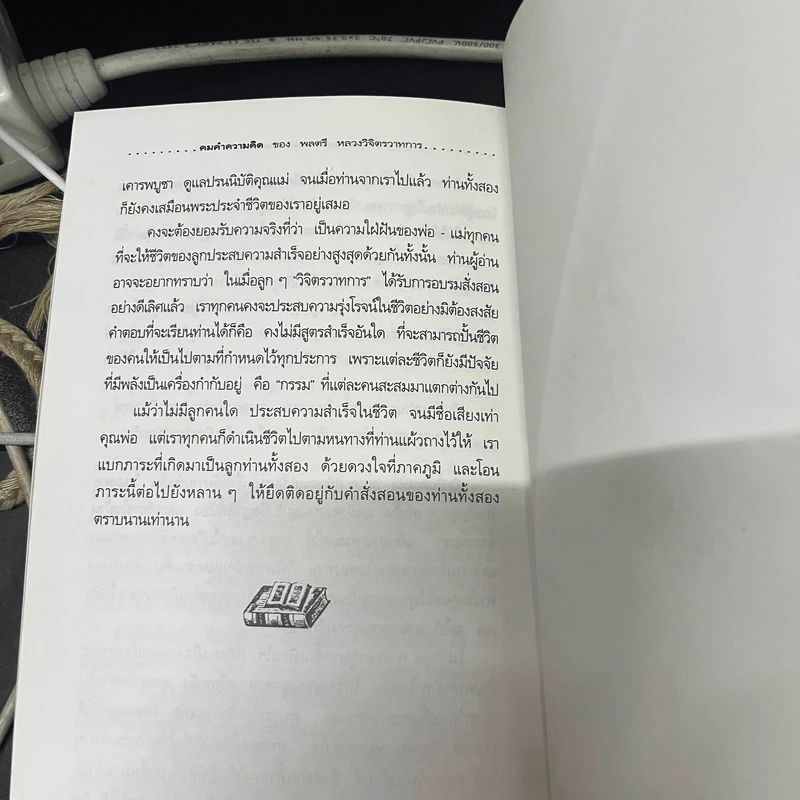 .........คมคำความคิด ของ พลตรี หลวงวิจิตรวาทการ.........
เคารพบูชา ดูแลปรนนิบัติคุณแม่ จนเมื่อท่านจากเราไปแล้ว ท่านทั้งสอง
ก็ยังคงเสมือนพระประจำชีวิตของเราอยู่เสมอ
คงจะต้องยอมรับความจริงที่ว่า เป็นความใฝ่ฝันของพ่อ - แม่ทุกคน
ที่จะให้ชีวิตของลูกประสบความสำเร็จอย่างสูงสุดด้วยกันทั้งนั้น ท่านผู้อ่าน
อาจจะอยากทราบว่า ในเมื่อลูก ๆ "วิจิตรวาทการ" ได้รับการอบรมสั่งสอน
อย่างดีเลิศแล้ว เราทุกคนคงจะประสบความรุ่งโรจน์ในชีวิตอย่างมิต้องสงสัย
คำตอบที่จะเรียนท่านได้ก็คือ คงไม่มีสูตรสำเร็จอันใด ที่จะสามารถปั้นชีวิต
ของคนให้เป็นไปตามที่กำหนดไว้ทุกประการ เพราะแต่ละชีวิตก็ยังมีปัจจัย
ที่มีพลังเป็นเครื่องกำกับอยู่ คือ "กรรม" ที่แต่ละคนสะสมมาแตกต่างกันไป
แม้ว่าไม่มีลูกคนใด ประสบความสำเร็จในชีวิต จนมีชื่อเสียงเท่า
คุณพ่อ แต่เราทุกคนก็ดำเนินชีวิตไปตามหนทางที่ท่านแผ้วถางไว้ให้ เรา
แบกภาระที่เกิดมาเป็นลูกท่านทั้งสอง ด้วยดวงใจที่ภาคภูมิ และโอน
ภาระนี้ต่อไปยังหลาน ๆ ให้ยึดติดอยู่กับคำสั่งสอนของท่านทั้งสอง
ตราบนานเท่านาน